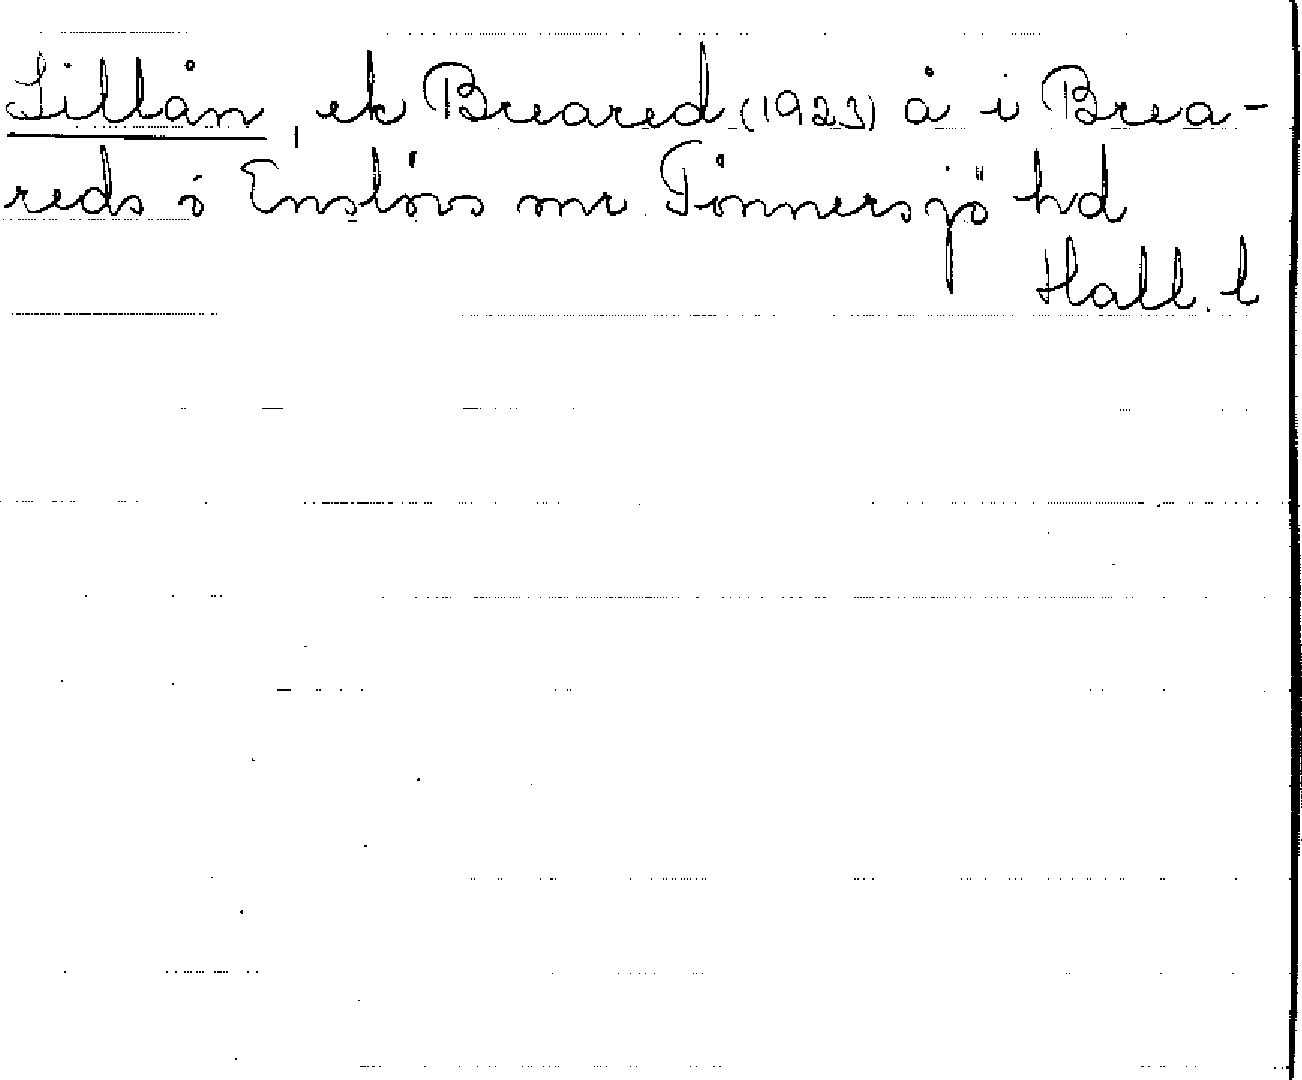 Lillån, ek Breared (1923) å i Brea-
reds o Enslövs snr Tönnersjö hd
Hall. l